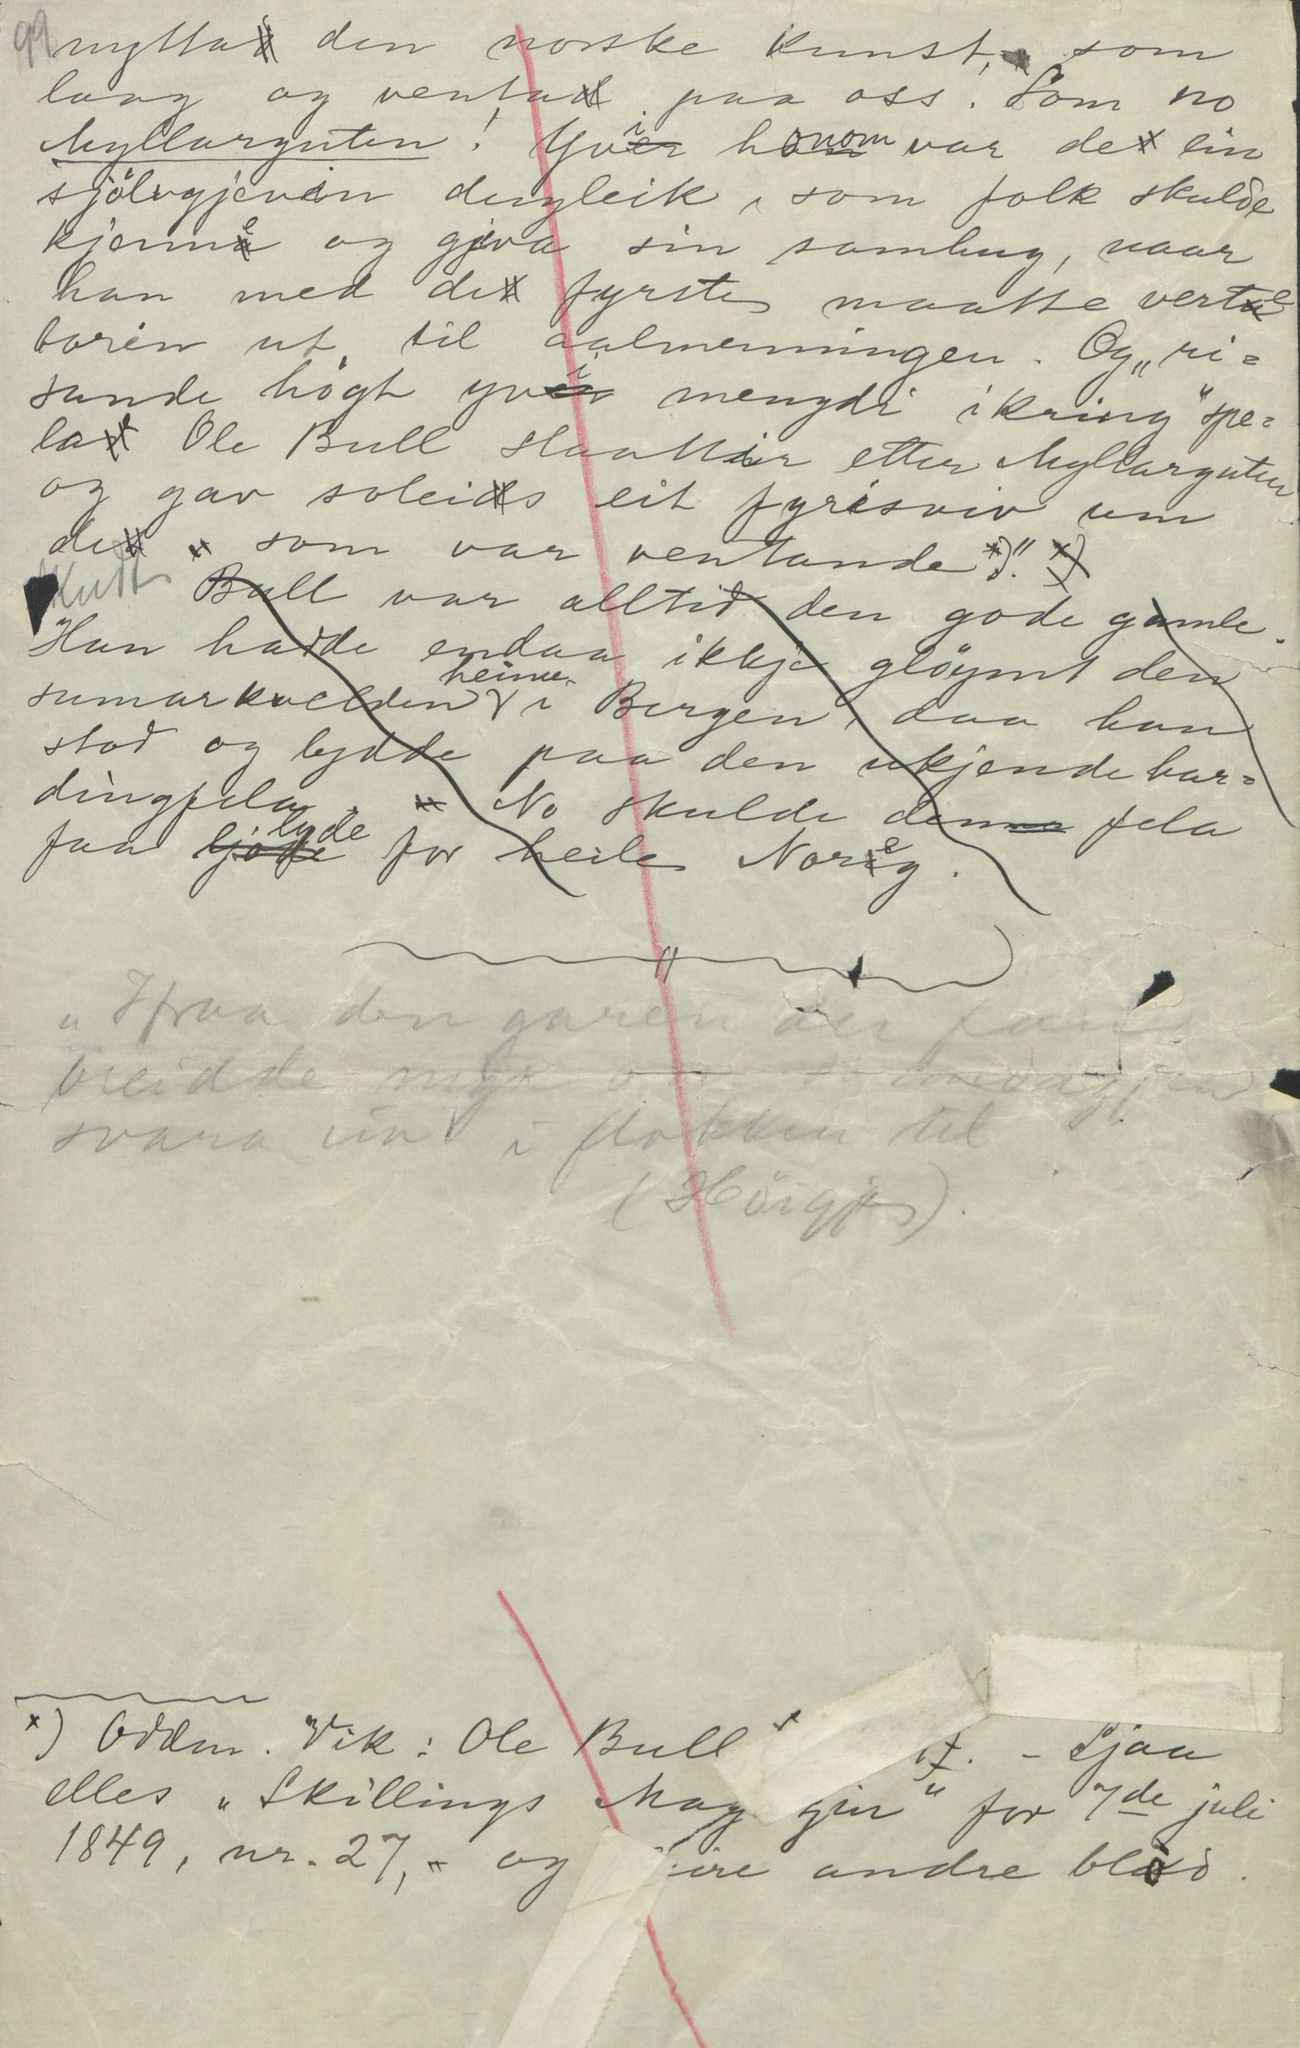 99 nytta den norske kunst, som
laag og venta paa oss. Som no
Myllarguten! Yvi honom var de ein
sjölvgjevin dugleik, som folk skulde
kjenne og gjeva sin samhug, naar
han med de fyrste maatte verte
boren ut til aalmenningen. Og „ri=
sande högt yvi mengdi ikring" spe=
la Ole Bull slaattir etter Myllarguten
og gav soleis eit fyrisviv um
de som var ventande *)." *)
Bull var alltid den gode gamle.
Han hadde endaa ikkje glöymt den
sumarkvelden heime i Bergen, daa han
stod og lydde paa den ukjende har=
dingfela. No skulde denne fela
faa lyde for heile Noreg.
„Ifraa den garen der
breidde mykje
svara ein i flokken til
*) Oddm. Vik: Ole Bull - Sjaa
elles „Skillings Mag zin" for 7de juli
1849, nr. 27, - og andre blöd.